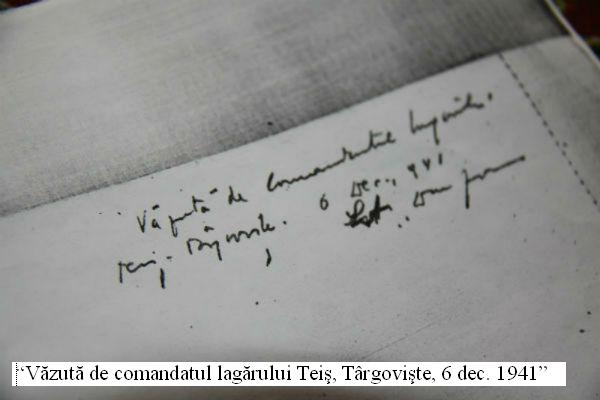 Văzută de comandatul lagărului
Teiș, Târgoviște. 6 Dec. 941
"Văzută de comandatul lagărului Teiş, Târgovişte, 6 dec. 1941"